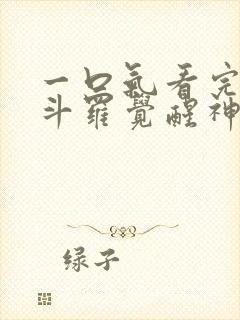 一口氣看完
斗羅覺醒神
绿子